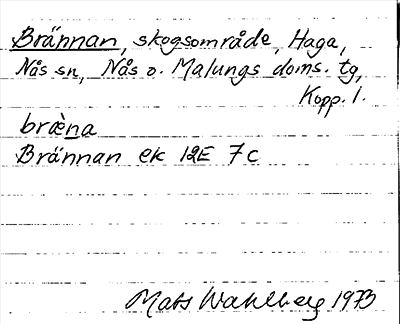 Brännan, skogsområde, Haga,
Nås sn, Nås o. Malungs doms. tg,
Kopp. l.
bræ̀na
Brännan ek 12E 7c
Mats Wahlberg 1973